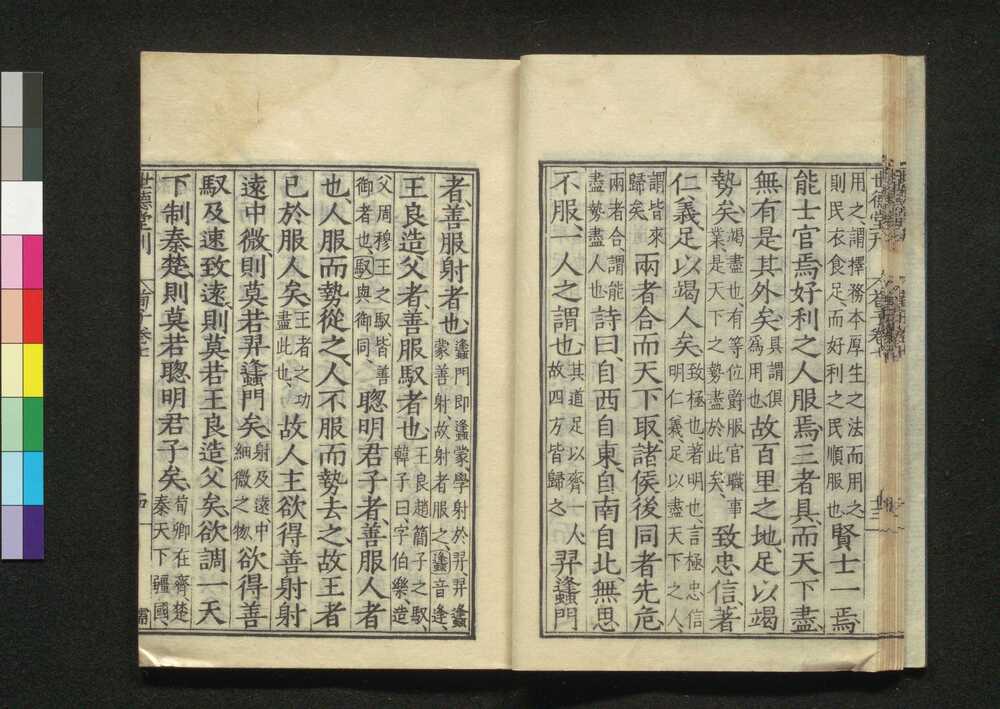 世德堂刊
用之、謂擇務本厚生之法而用之
則民衣食足而好利之民順服也
賢士一焉、
能士官焉、好利之人服焉、三者具、而天下盡、
無有是其外矣、具謂俱
爲用也、故百里之地、足以竭
勢矣、竭盡也、有等位爵服官職事
業、是天下之勢盡於此矣、致忠信著
仁義足以竭人矣、致極也、著明也、言極忠信
明仁義、足以盡天下之人、
謂皆來
歸矣、兩者合而天下取、諸侯後同者先危
兩者合、謂能
盡勢盡人也、詩曰、自西自東、自南自北、無思
不服、一人之謂也、其道足以齊一人、
故四方皆歸之、羿蠭門
者、善服射者也、蠭門即蠭蒙、學射於羿、羿蠭
蒙善射、故射者服之、蠭音逢、
王良造父者、善服馭者也、王良趙簡子之馭、
韓子曰字伯樂、造
父周穆王之馭、皆善
御者也、馭與御同、聰明君子者、善服人者
也、人服而勢從之、人不服而勢去之、故王者
已於服人矣、王者之功
盡此也、故人主欲得善射射
遠中微、則莫若羿蠭門矣、射及遠中
細微之物、欲得善
馭及速致遠、則莫若王良造父矣、欲調一天
下制秦楚、則莫若聰明君子矣、荀卿在齊、楚
秦天下彊國、
世德堂刊
荀子卷七